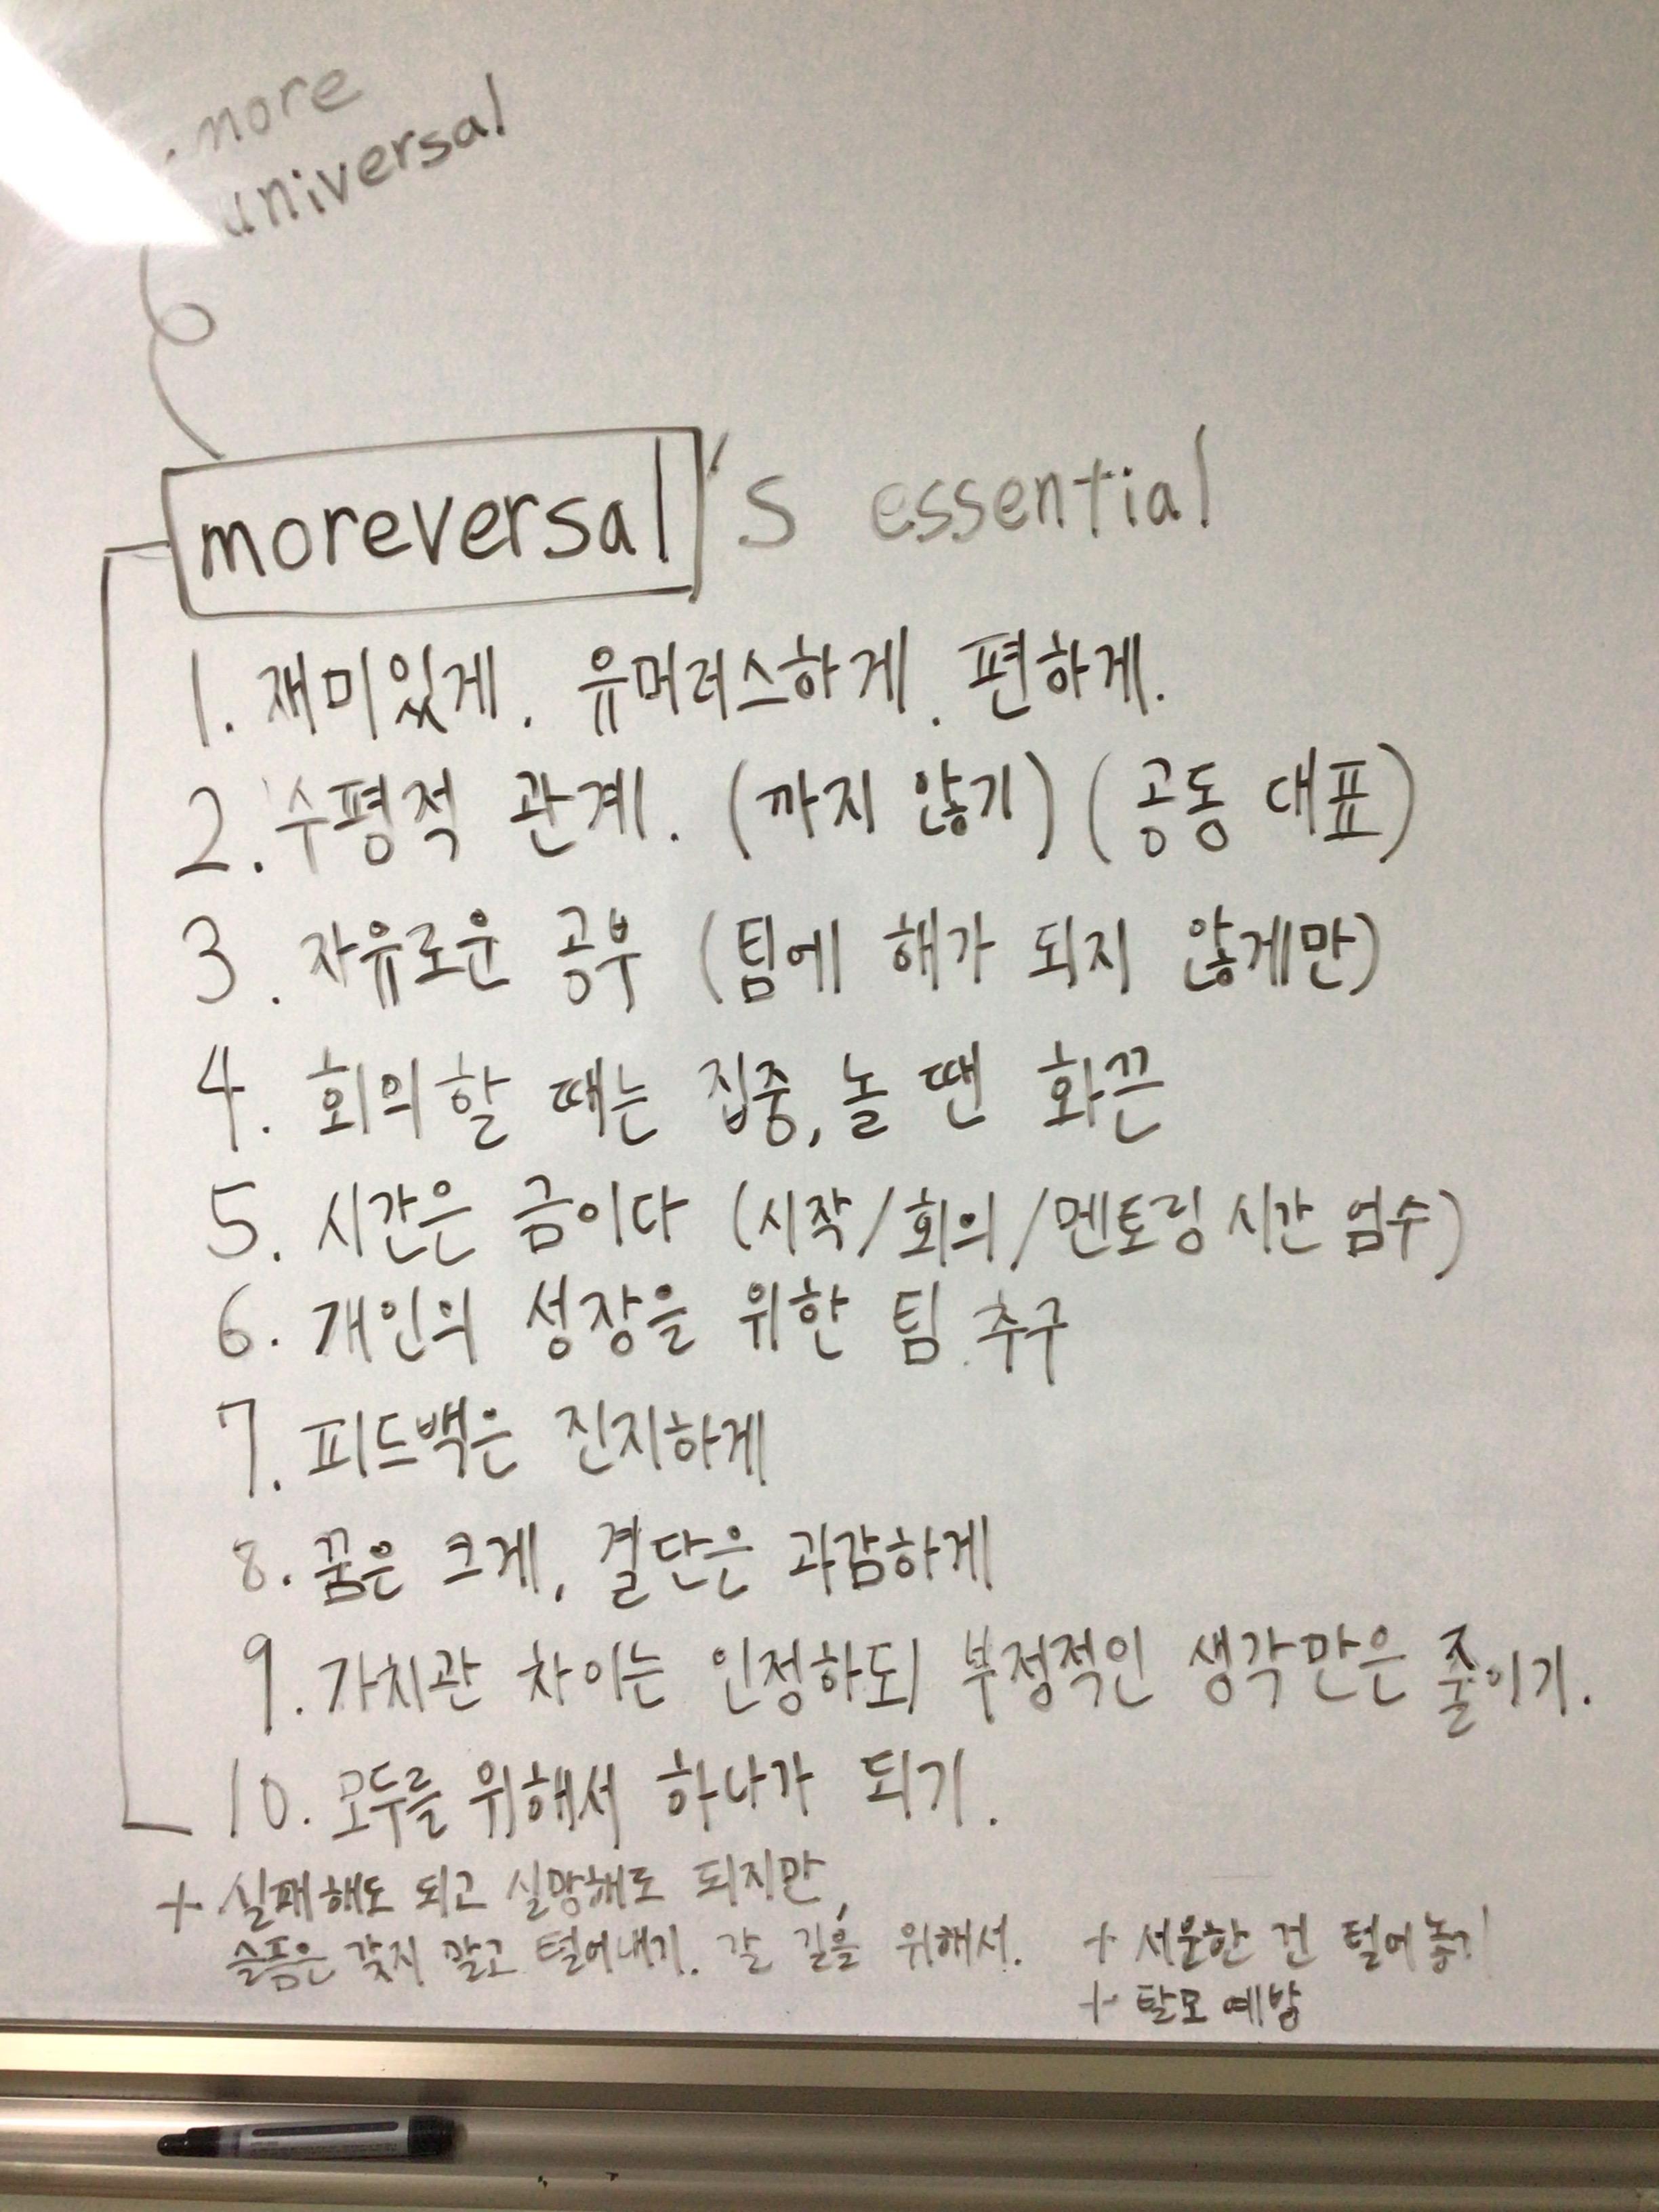 more
universal
moreversal's essential
1. 재미있게. 유머러스하게. 편하게.
2. 수평적 관계. (까지 않기) (공동 대표)
3. 자유로운 공부 (팀에 해가 되지 않게만)
4. 회의할 때는 집중, 놀 땐 화끈
5. 시간은 금이다 (시작/회의/멘토링 시간 엄수)
6. 개인의 성장을 위한 팀 추구
7. 피드백은 진지하게
8. 꿈은 크게, 결단은 과감하게
9. 가치관 차이는 인정하되 부정적인 생각만은 줄이기.
10. 모두를 위해서 하나가 되기.
+ 실패해도 되고 실망해도 되지만,
슬픔은 갖지 말고 털어내기. 갈 길을 위해서.
+ 서운한 건 털어놓기
+ 탈모 예방